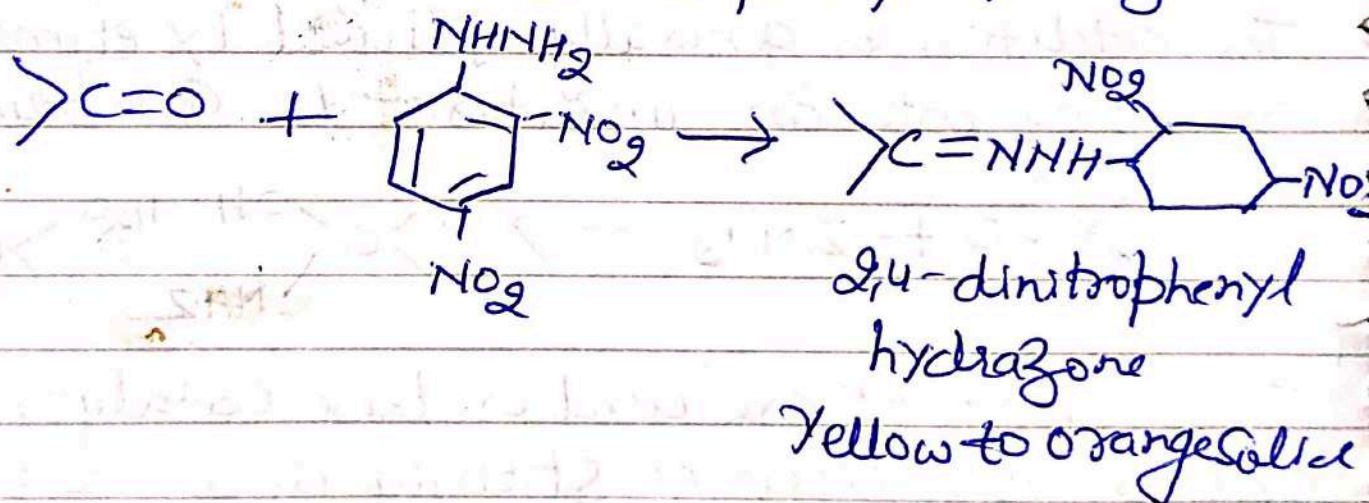 NHNH2
>C=O + -NO2 → >C=NNH- NO2
-NO2
NO2
2,4-dinitrophenyl
hydrazone
Yellow to orange Solid